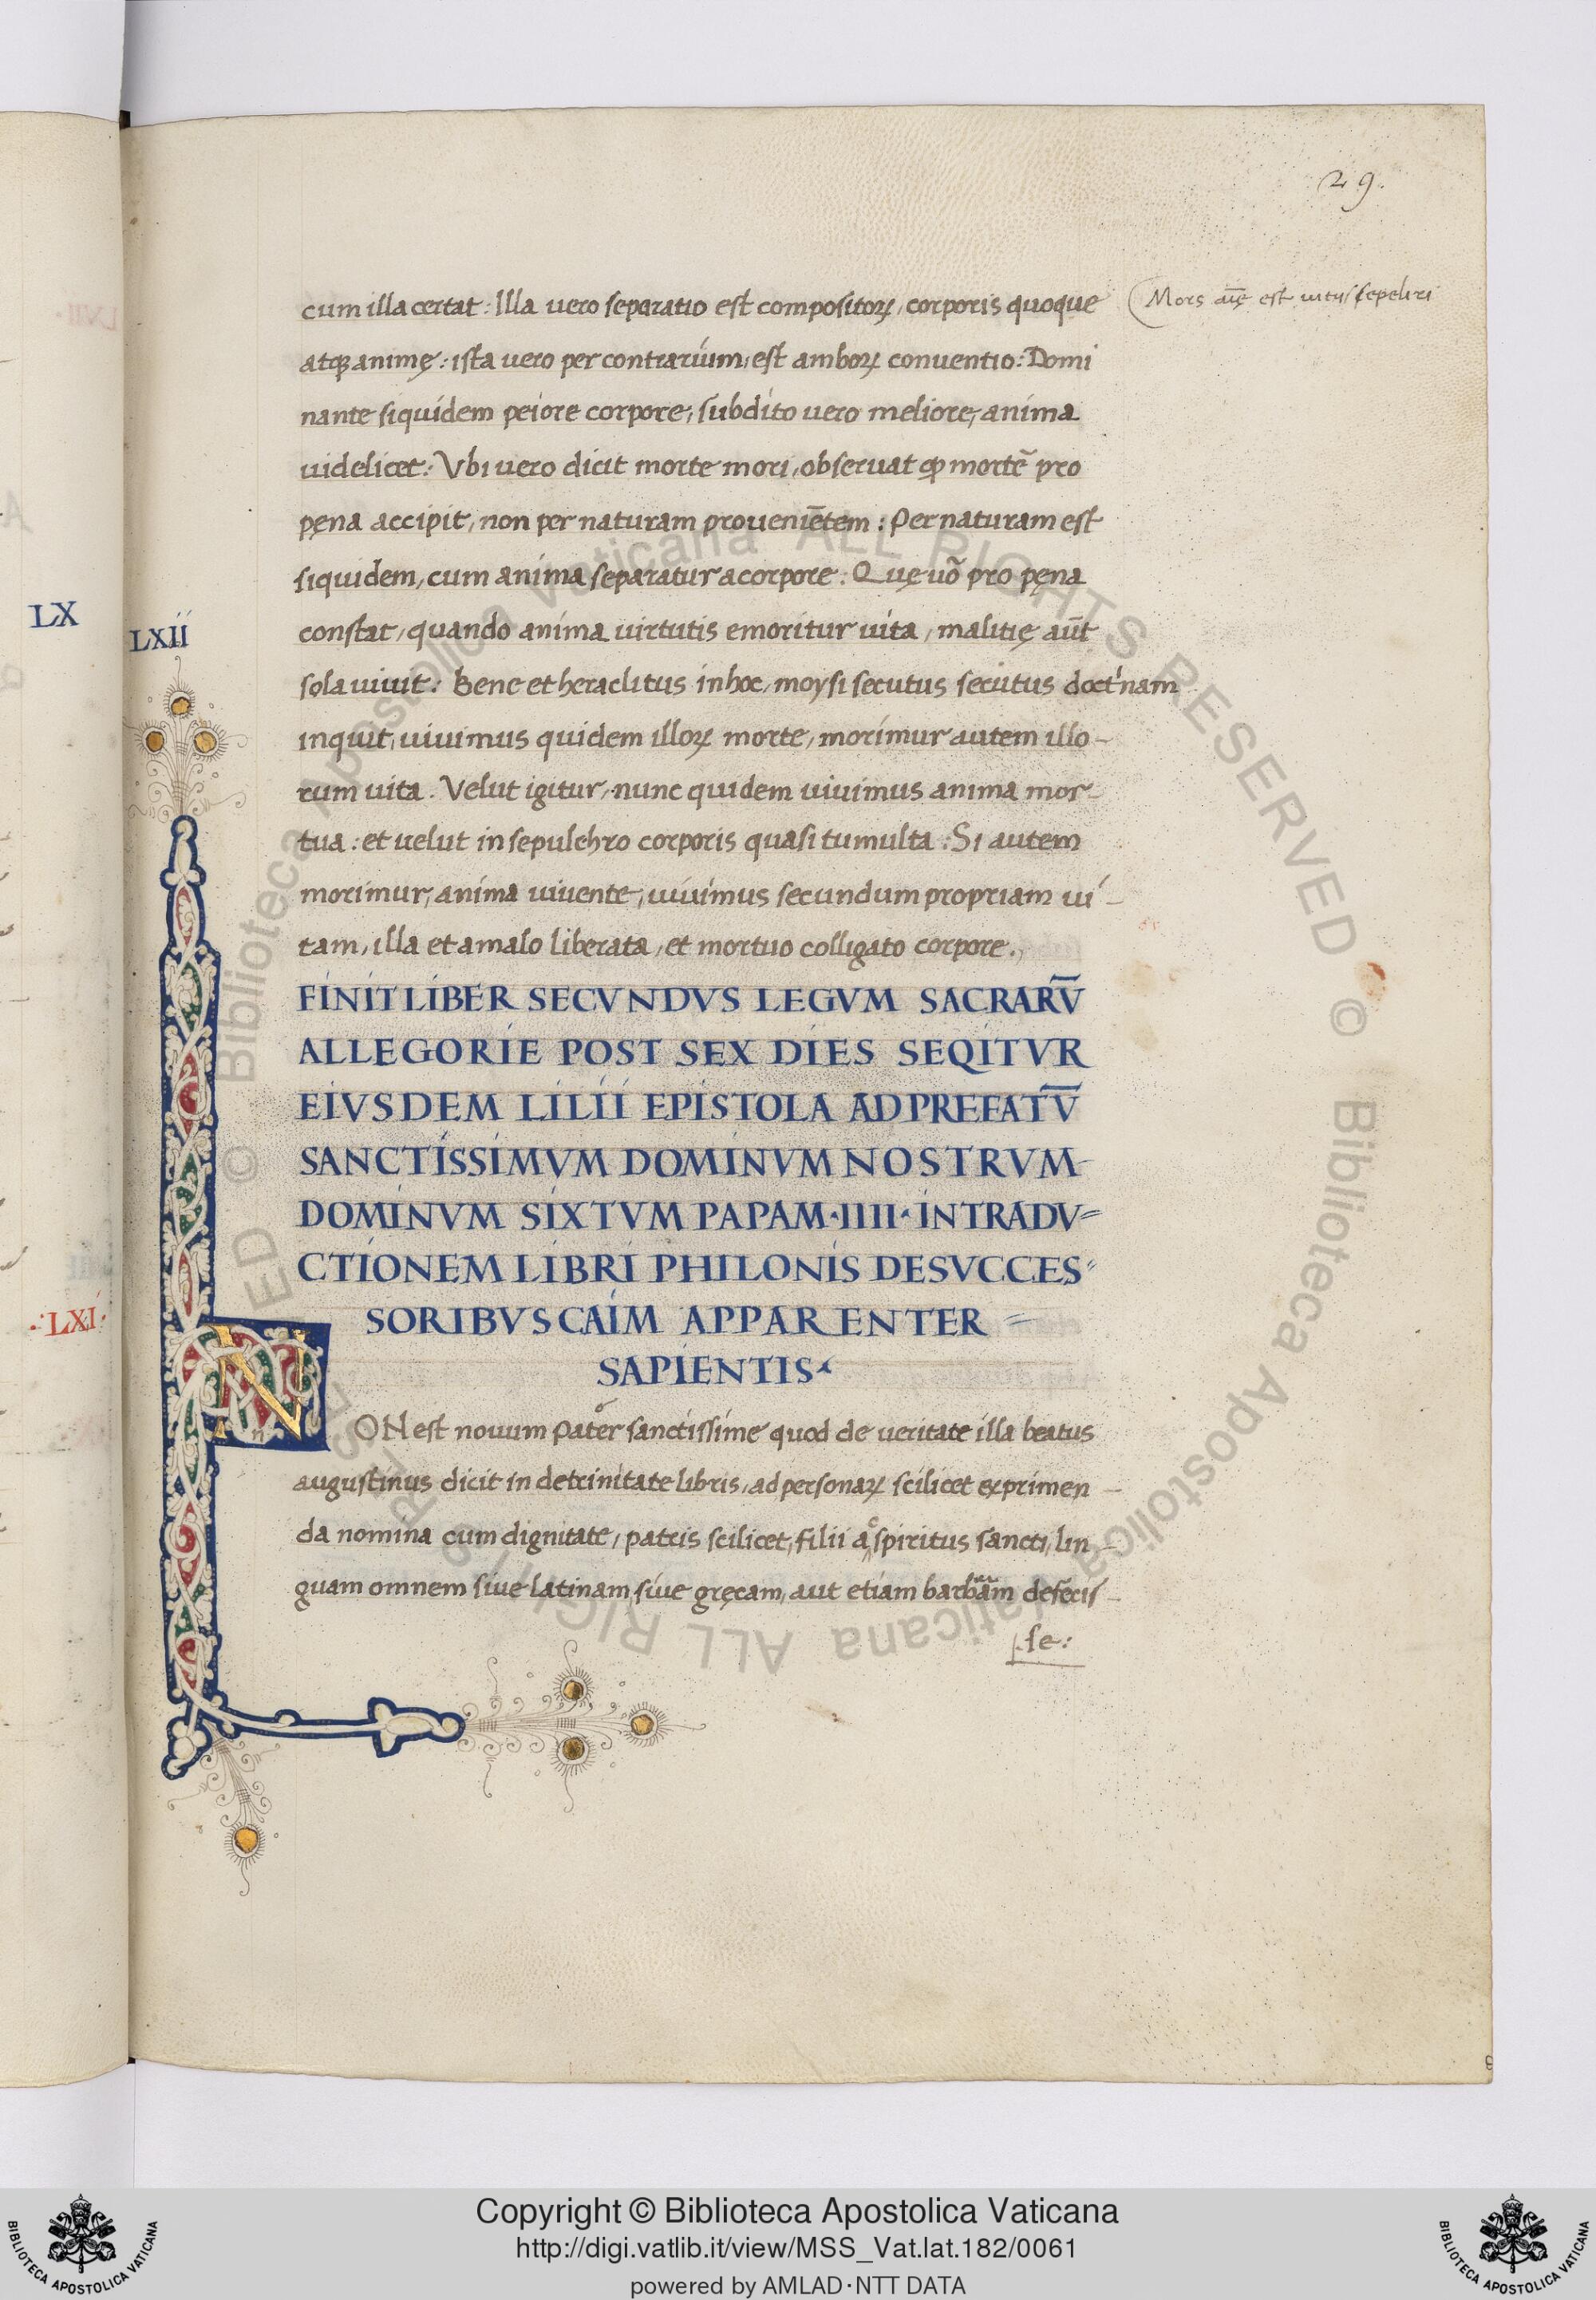 29.
cum illa certat: Illa vero separatio est compositoꝝ, corporis quoque
Mors aīę est vitijs sepeliri
atqꝫ animę: ista vero per contrarium, est amboꝝ conventio: Domi
nante siquidem peiore corpore, subdito vero meliore, anima
videlicet: Vbi vero dicit morte mori, observat ꝙ mortē pro
pęna accipit, non per naturam proveniētem: Per naturam est
siquidem, cum anima separatur a corpore: Quę vō pro pęna
constat, quando anima virtutis emoritur vita, malitię aūt
LX
LXII
sola vivit: Bene et heraclitus in hoc, moysi secutus secutus doct'nam
inquit, vivimus quidem illoꝝ morte, morimur autem illo-
rum vita. Velut igitur, nunc quidem vivimus anima mor-
tua: et velut in sepulchro corporis quasi tumulta: Si autem
morimur, anima vivente, vivimus secundum propriam vi-
tam, illa et a malo liberata, et mortuo colligato corpore.,
FINIT LIBER SECVNDVS LEGVM SACRARV̄
ALLEGORIE POST SEX DIES SEQITVR
EIVSDEM LILII EPISTOLA AD PREFATV̄
SANCTISSIMVM DOMINVM NOSTRVM-
DOMINVM SIXTVM PAPAM·IIII·IN TRADV=
CTIONEM LIBRI PHILONIS DE SVCCES=
.·LXI·
SORIBVS CAIM APPARENTER =
SAPIENTIS
NON est novum pater sanctissime quod de veritate illa beatus
augustinus dicit in de trinitate libris, ad personaꝝ scilicet exprimen-
da nomina cum dignitate, patris scilicet, filii ac spiritus sancti, lin-
guam omnem sive latinam, sive gręcam, aut etiam barbaram defecis-
se:
Copyright © Biblioteca Apostolica Vaticana
http://digi.vatlib.it/view/MSS_Vat.lat.182/0061
powered by AMLAD·NTT DATA
BIBLIOTECA APOSTOLICA VATICANA
BIBLIOTECA APOSTOLICA VATICANA
© Biblioteca Apostolica Vaticana ALL RIGHTS RESERVED © Biblioteca Apostolica Vaticana ALL RIGHTS RESERVED